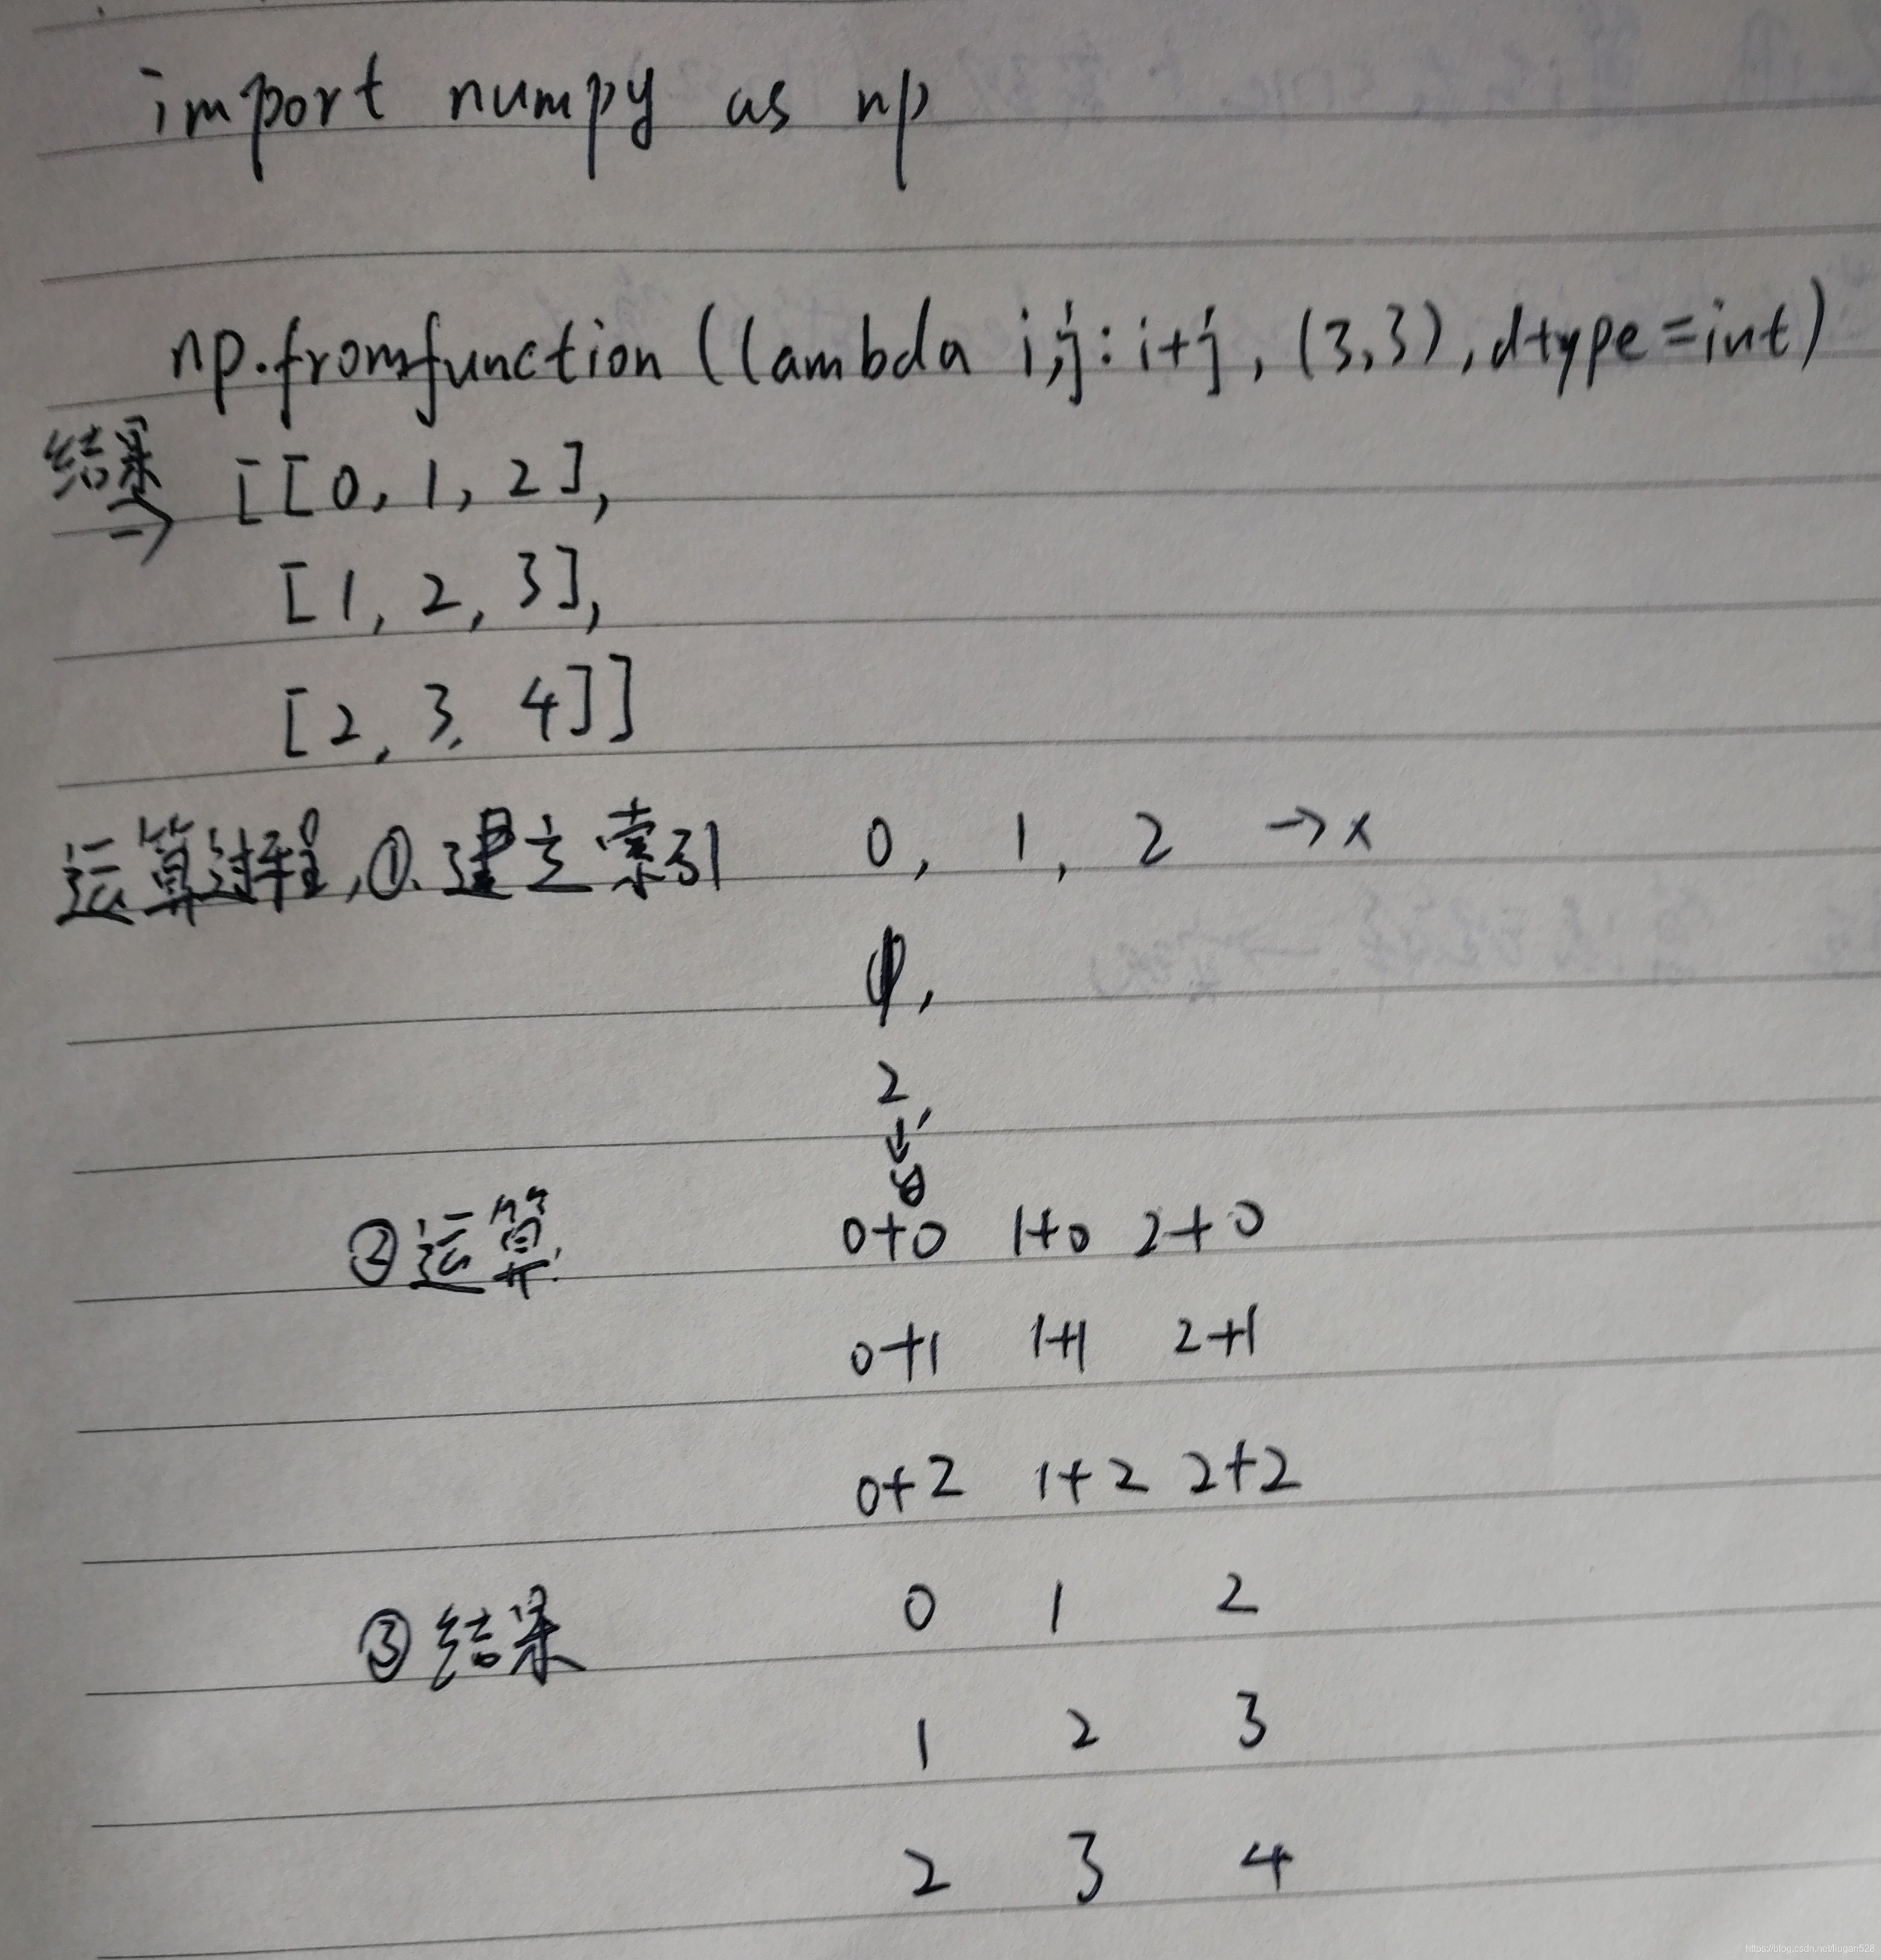 import numpy as np
np.fromfunction (lambda i,j: i+j, (3,3), dtype=int)
结果 → [[0, 1, 2],
[1, 2, 3],
[2, 3, 4]]
运算过程, ①. 建立索引 0, 1, 2 → x
1,
2,
↓
y
② 运算. 0+0 1+0 2+0
0+1 1+1 2+1
0+2 1+2 2+2
③ 结果 0 1 2
1 2 3
2 3 4
https://blog.csdn.net/liugan528